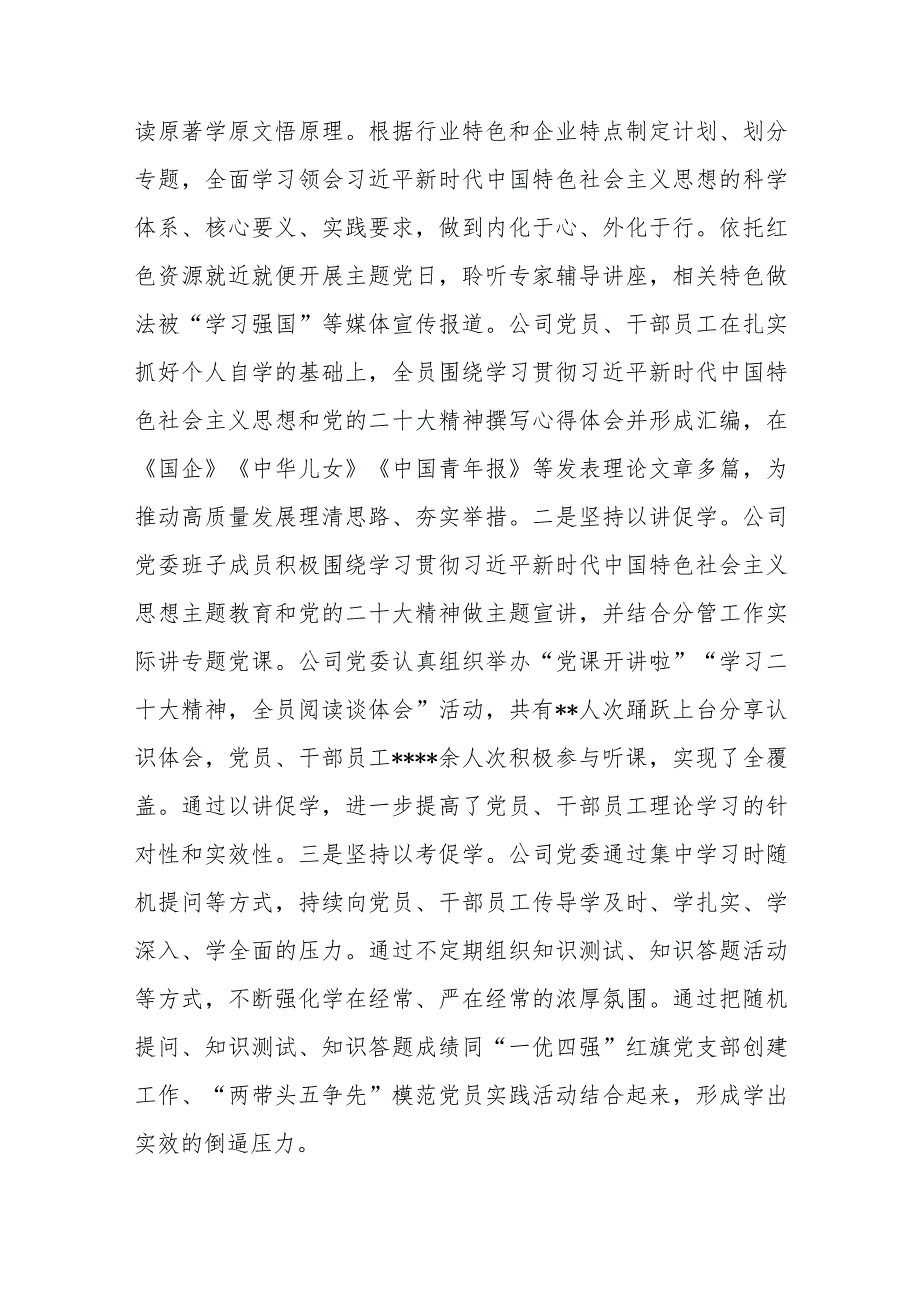 读原著学原文悟原理。根据行业特色和企业特点制定计划、划分
专题，全面学习领会习近平新时代中国特色社会主义思想的科学
体系、核心要义、实践要求，做到内化于心、外化于行。依托红
色资源就近就便开展主题党日，聆听专家辅导讲座，相关特色做
法被“学习强国”等媒体宣传报道。公司党员、干部员工在扎实
抓好个人自学的基础上，全员围绕学习贯彻习近平新时代中国特
色社会主义思想和党的二十大精神撰写心得体会并形成汇编，在
《国企》《中华儿女》《中国青年报》等发表理论文章多篇，为
推动高质量发展理清思路、夯实举措。二是坚持以讲促学。公司
党委班子成员积极围绕学习贯彻习近平新时代中国特色社会主义
思想主题教育和党的二十大精神做主题宣讲，并结合分管工作实
际讲专题党课。公司党委认真组织举办“党课开讲啦”“学习二
十大精神，全员阅读谈体会”活动，共有**人次踊跃上台分享认
识体会，党员、干部员工****余人次积极参与听课，实现了全覆
盖。通过以讲促学，进一步提高了党员、干部员工理论学习的针
对性和实效性。三是坚持以考促学。公司党委通过集中学习时随
机提问等方式，持续向党员、干部员工传导学及时、学扎实、学
深入、学全面的压力。通过不定期组织知识测试、知识答题活动
等方式，不断强化学在经常、严在经常的浓厚氛围。通过把随机
提问、知识测试、知识答题成绩同“一优四强”红旗党支部创建
工作、“两带头五争先”模范党员实践活动结合起来，形成学出
实效的倒逼压力。